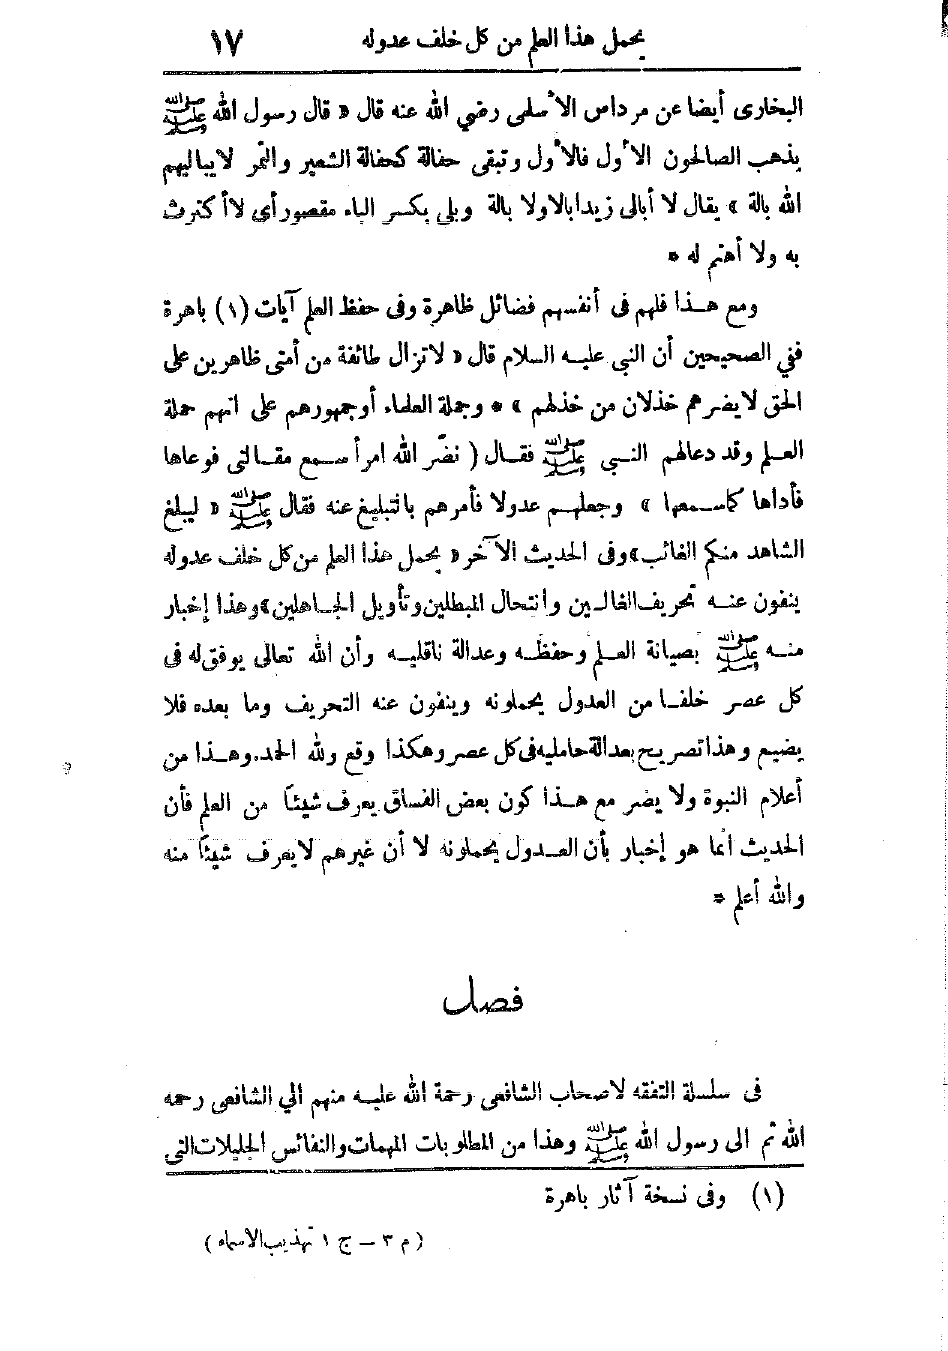 يحمل هذا العلم من كل خلف عدوله ١٧
البخارى أيضا عن مرداس الأسلمى رضي الله عنه قال « قال رسول الله ﷺ
يذهب الصالحون الأول فالأول وتبقى حفالة كحفالة الشعير والتمر لايباليهم
الله بالة » يقال لا أبالى زيدا بالا ولا بالة وبلى بكسر الباء مقصور أى لا أكترث
به ولا أهتم له *
ومع هـذا فلهم فى أنفسهم فضائل ظاهرة وفى حفظ العلم آيات (١) باهرة
ففي الصحيحين أن النبى عليه السلام قال « لاتزال طائفة من أمتى ظاهرين على
الحق لايضرهم خذلان من خذلهم » * وجملة العلماء أوجمهورهم على انهم حملة
العـلم وقد دعالهم النـبى ﷺ فقـال ( نضّر الله امرأ سـمع مقـالتى فوعاها
فأداها كماسـمعها » وجعلهـم عدولا فأمرهم بالتبليغ عنه فقال ﷺ « ليبلغ
الشاهد منكم الغائب » وفى الحديث الآخر « يحمل هذا العلم من كل خلف عدوله
ينفون عنـه تحريف الغالـين وانتحال المبطلين وتأويل الجـاهلين » وهذا إخبار
منـه ﷺ بصيانة العـلم وحفظـه وعدالة ناقليـه وأن الله تعالى يوفق له فى
كل عصر خلفـا من العدول يحملونه وينفون عنه التحريف وما بعده فلا
يضيع وهذا تصريح بعدالة حامليه فى كل عصر وهكذا وقع ولله الحمد. وهـذا من
أعلام النبوة ولا يضر مع هـذا كون بعض الفساق يعرف شيئاً من العلم فأن
الحديث انما هو إخبار بأن العـدول يحملونه لا أن غيرهم لايعرف شيئاً منه
والله أعلم *
فصل
فى سلسلة التفقه لاصحاب الشافعى رحمة الله عليـه منهم الي الشافعى رحمه
الله ثم الى رسول الله ﷺ وهذا من المطلوبات المهمات والنفائس الجليلات التى
(١) وفى نسخة آثار باهرة
( م ٣ – ج ١ تهذيب الاسماء )